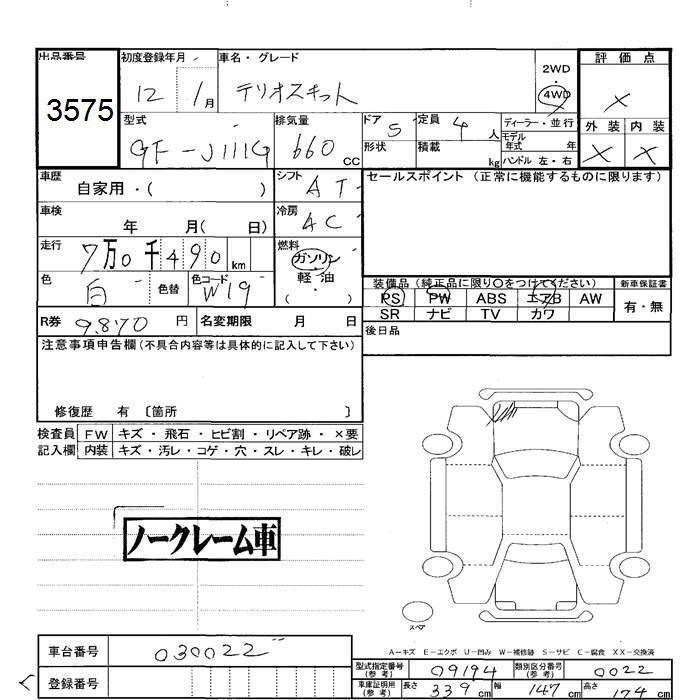 出品番号 初度登録年月 車名・グレード 2WD 評価点
3575 12 1月 テリオスキット 4WD ×
型式 排気量 ドア 5 定員 4人 ディーラー・並行 外装 内装
GF-J111G 660CC 形状 積載 kg モデル年式 年 × ×
ハンドル 左・右
車歴 自家用・( ) シフト AT セールスポイント (正常に機能するものに限ります)
車検 年 月( 日) 冷房 AC
走行 7万0千490km 燃料 ガソリン・軽油・( )
色 白 色替 色コード W19
装備品 (純正品に限り○をつけてください) 新車保証書
PS PW ABS エアB AW 有・無
R券 9.870円 名変期限 月 日 SR ナビ TV カワ
注意事項申告欄(不具合内容等は具体的に記入して下さい) 後日品
修復歴 有 〔箇所 〕
検査員 FW キズ・飛石・ヒビ割・リペア跡・×要
記入欄 内装 キズ・汚レ・コゲ・穴・スレ・キレ・破レ
ノークレーム車
スペア
A-キズ E-エクボ U-凹み W-補修跡 S-サビ C-腐食 XX-交換済
車台番号 030022
型式指定番号(参考) 09194 類別区分番号(参考) 0022
登録番号
車庫証明用(参考) 長さ 339cm 幅 147cm 高さ 174cm